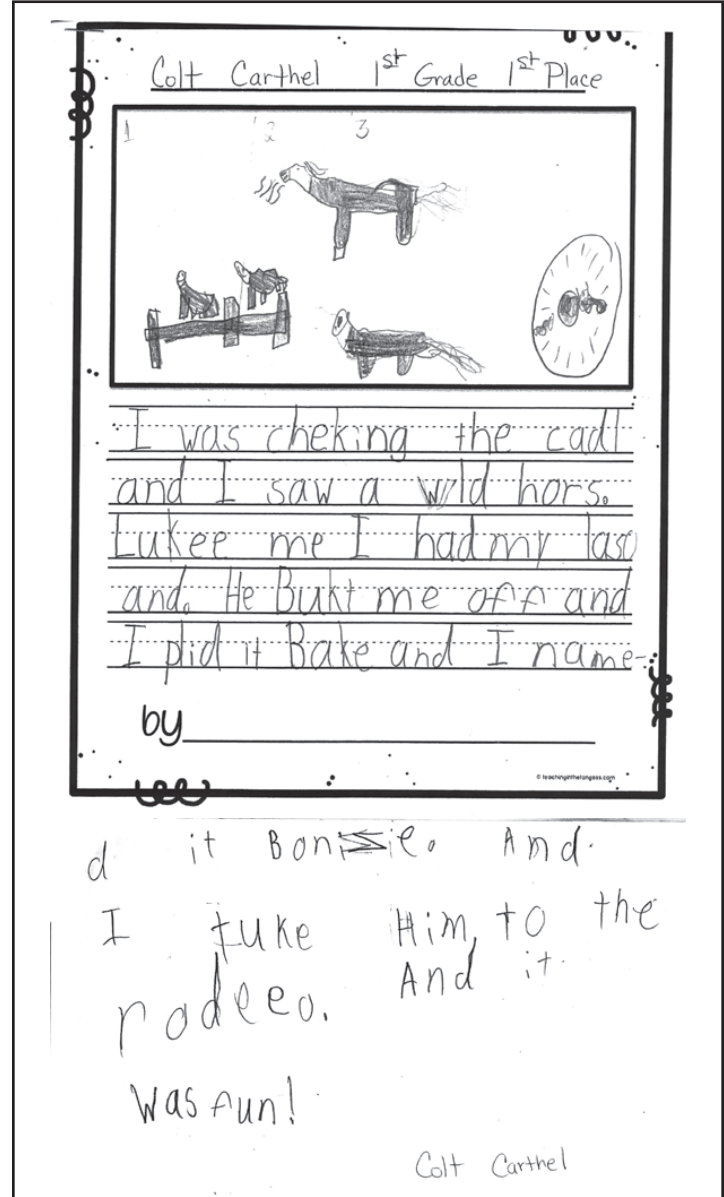 Colt Carthel 1st Grade 1st Place
1 2 3
I was cheking the cadl
and I saw a wild hors.
Lukee me I had my laso
and. He Bukt me off and
I plid it Bake and I name-
by
© teachinginthetongass.com
d it Bonsie. And.
I tuke Him, to the
rodeeo. And it.
was fun!
Colt Carthel